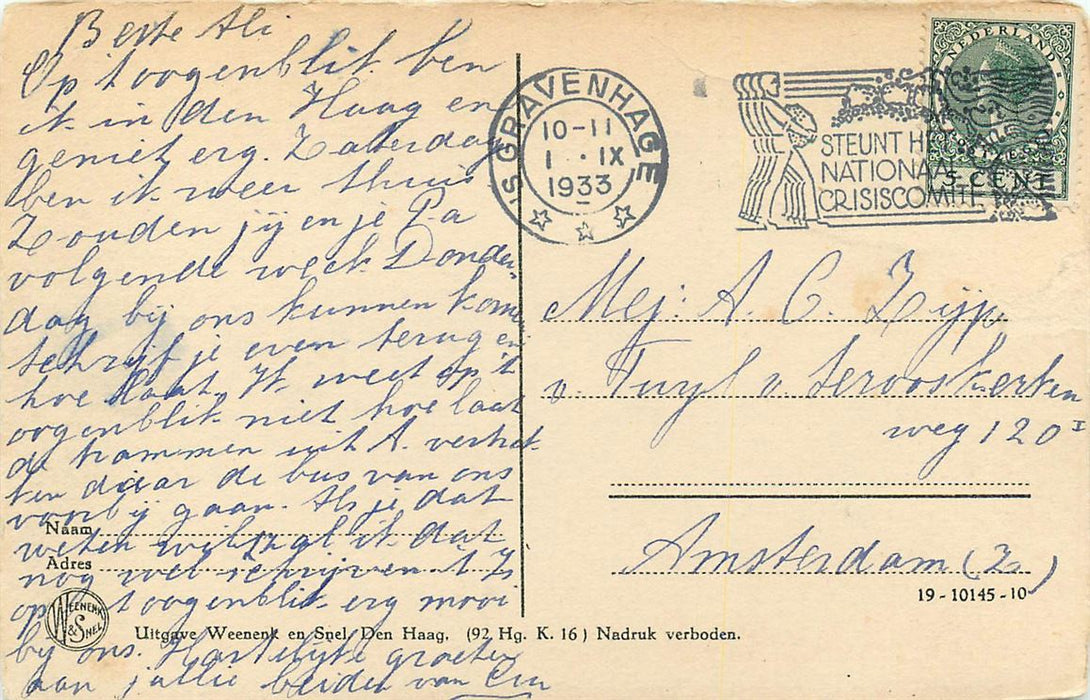 Beste Ali
Op 't oogenblik ben
ik in den Haag en
geniet erg. Zaterdag
ben ik weer thuis
Zouden jij en je Pa
volgende week Donder-
dag bij ons kunnen kom
schrijf je even terug en
hoe laat. Ik weet op 't
oogenblik niet hoe laat
de trammen uit A. vertrek-
ken daar de bus van ons
voorbij gaan. Als je dat
weten wilt zal ik dat
nog wel schrijven. 't Is
op 't oogenblik erg mooi
bij ons. Hartelijke groeten
aan jullie beiden van
Naam
Adres
WEENENK & SNEL
Uitgave Weenenk en Snel, Den Haag. (92 Hg. K. 16) Nadruk verboden.
'S GRAVENHAGE
10-11
1 . IX
1933
STEUNT H
NATIONAA
CRISISCOMITÉ
NEDERLAND
5 CENT
Mej: A. C. Zijp
v. Tuyl v. Serooskerken
weg 120 I
Amsterdam (Z)
19-10145-10